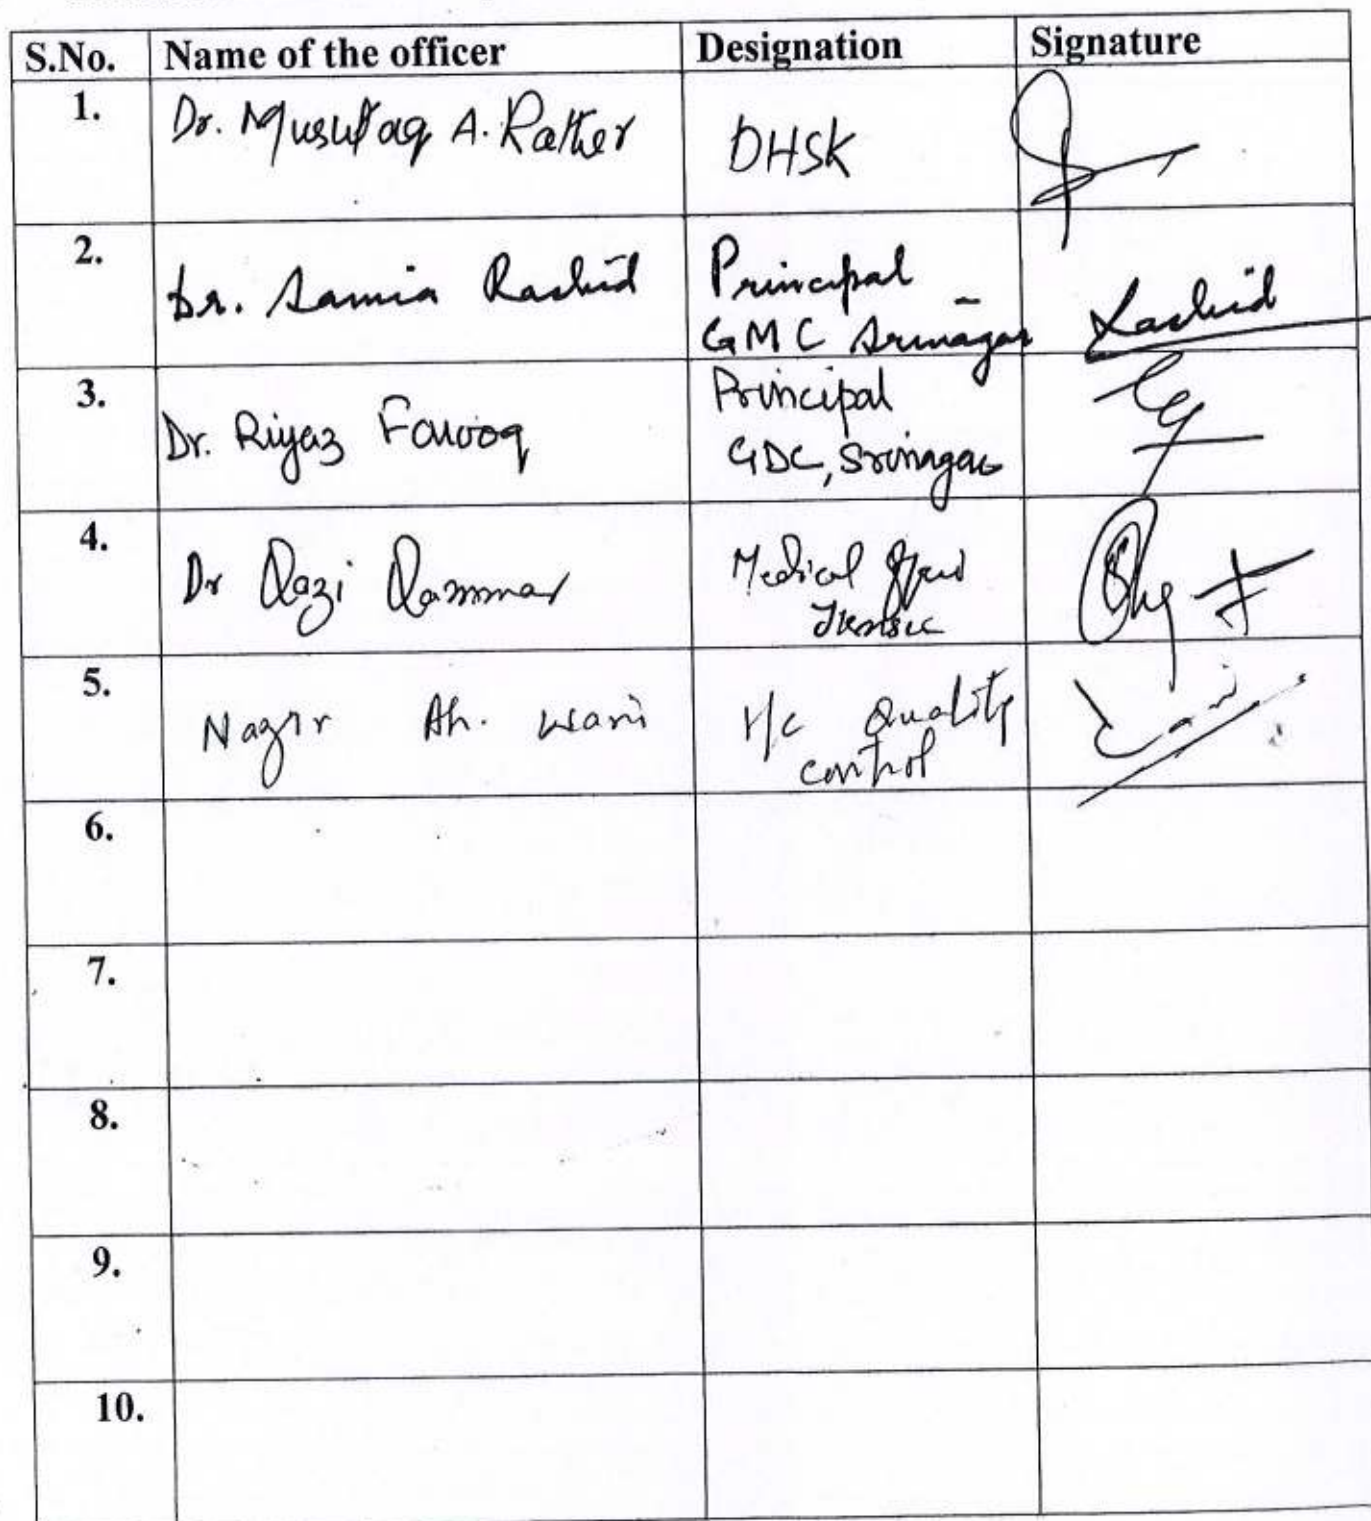 S.No. Name of the officer Designation Signature
1. Dr. Mushtaq A. Rather DHSK
2. Dr. Samia Rashid Principal
GMC Srinagar Rashid
3. Dr. Riyaz Farooq Principal
GDC, Srinagar
4. Dr Qazi Qammar Medical
5. Nazir Ah. Wani I/c Quality
control
6.
7.
8.
9.
10.